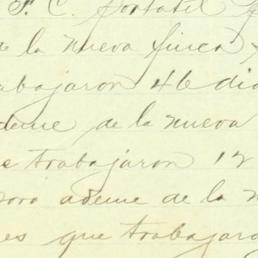 F. C.
de la nueva finca
trabajaron 46 dia
ademe de la nueva
e trabajaron 12
para ademe de la n
es que trabajaro